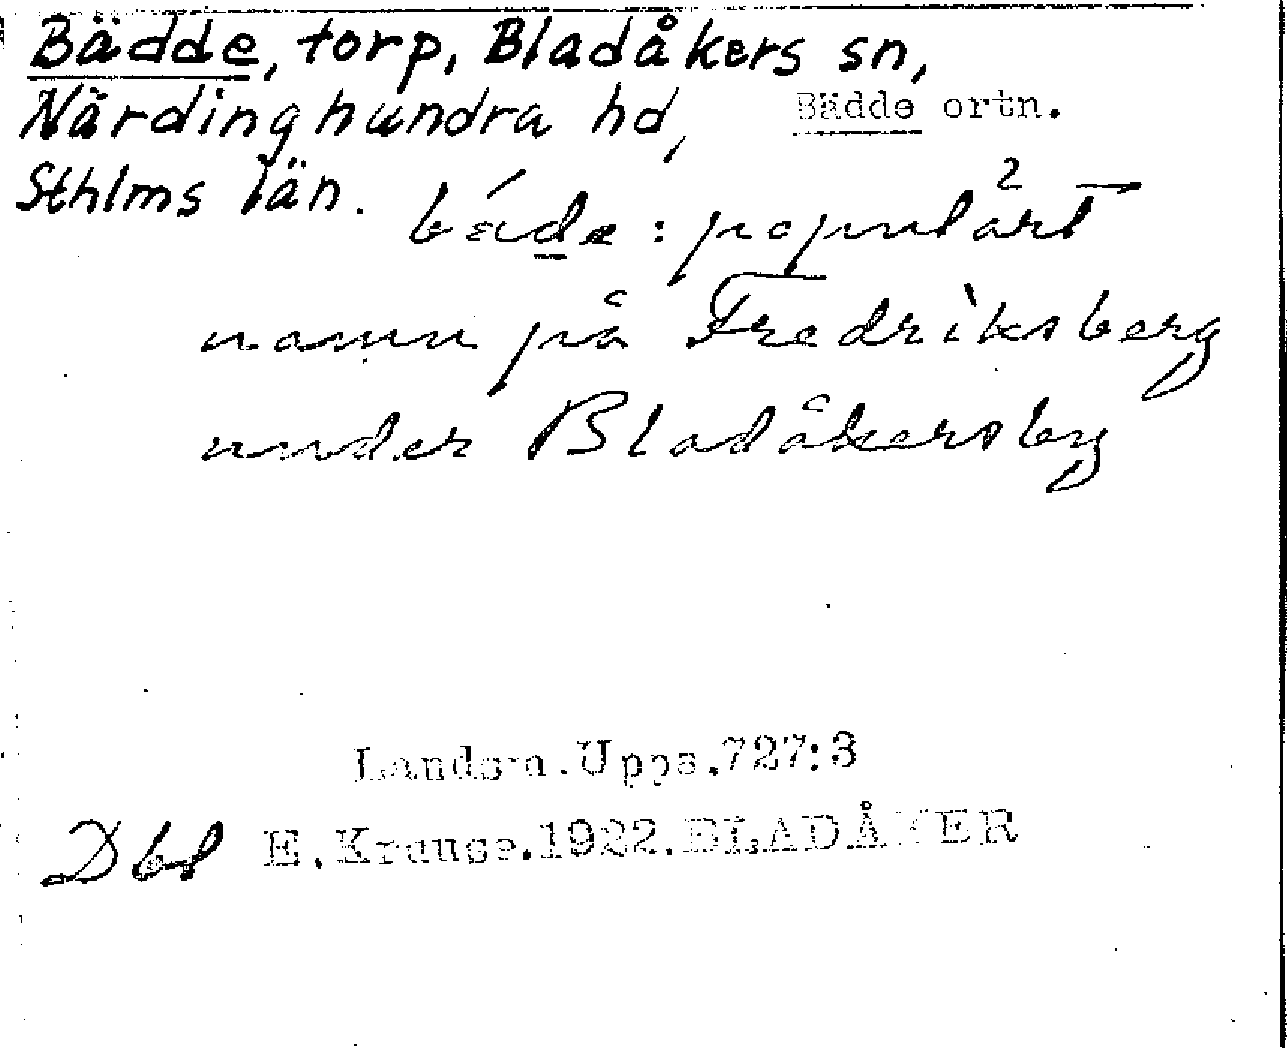 Bädde, torp, Bladåkers sn,
Närdinghundra hd,
Bädde ortn.
Sthlms län.
bádе : populärt
namn på Fredriksberg
under Bladåkersby
Landsm.Upps.727:3
Dbl E.Krause.1922.BLADÅKER